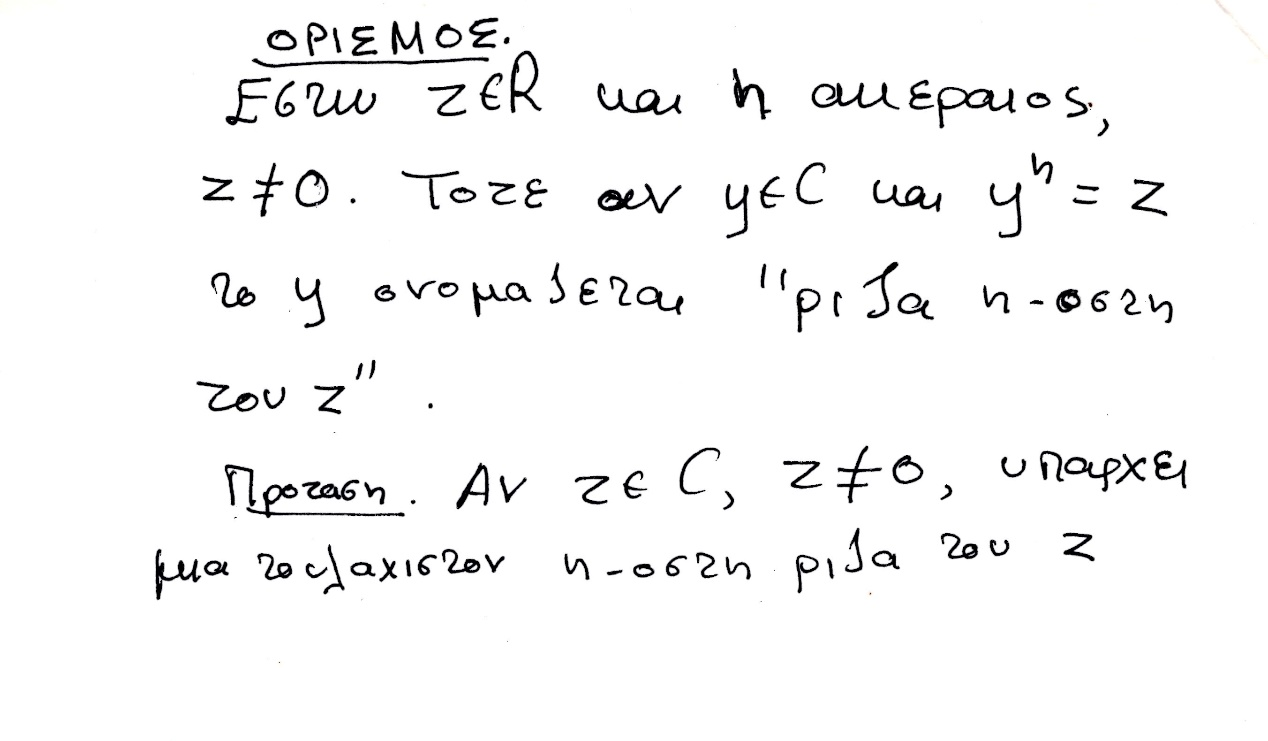 ΟΡΙΣΜΟΣ.
Εστω z∈R και n ακεραιος,
z≠0. Τοτε αν y∈C και yⁿ = z
το y ονομαζεται "ριζα n-οστη
του z".
Προταση. Αν z∈C, z≠0, υπαρχει
μια τουλαχιστον n-οστη ριζα του z